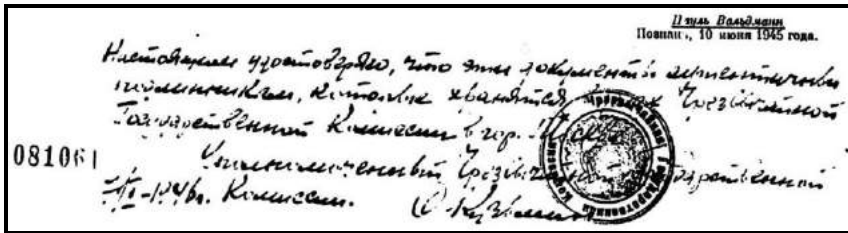 Пауль Вальдманн
Познань, 10 июня 1945 года.
Настоящим удостоверяю, что эти документы аутентичны
подлинникам, которые хранятся Чрезвычайной
Государственной Комиссии в гор. Москве
081061
Уполномоченный Чрезвычайной Государственной
1946г. Комиссии.